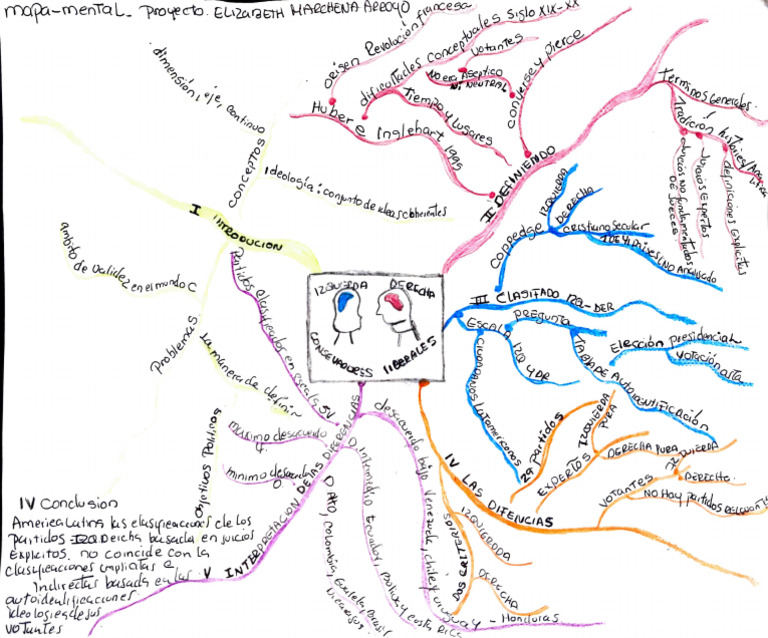 mapa-mental- proyecto. ELIZABETH MARCHENA ARROYO
dimensión, eje, continuo
conceptos
Ideología: conjunto de ideas coherentes
I INTRODUCION
ambito de validez en el mundo C
Problemas
La manera de definir
Objetivos Politicos
Partidos clasificados en escala
origen Revolución francesa
Huber e Inglehart 1995
dificultades conceptuales Siglo XIX-XX
votantes
No era Aseptico
Ni NEUTRAL
Tiempo y Lugares
converse y pierce
II DEFINIENDO
Terminos Generales
Tradición
Juicios Expertos
definiciones Explicitas
IZQUIERDA
DERECHA
CONSERVADORES
liberales
coppedge
IZQUIERDA
DERECHA
cristiano Secular
III CLASIFADO IZQ-DER
ESCALA
PREGUNTA
IZQ Y DR
CIUDADANOS Latamericanos
TABLA DE AUTOIDENTIFICACIÓN
Elección presidencial
votación alta
IV LAS DIFENCIAS
29 partidos
EXPERTOS
IZQUIERDA
PURA
DERECHA PURA
VOTANTES
IZQUIERDA
DERECHA
NO HAY partidos
DOS CRITERIOS
IZQUIERDA
DERECHA
V INTERPRETACION DE LAS DIFERENCIAS
maximo desacuerdo
minimo desacuerdo
desacuerdo bajo Venezuela, chile y uruguay - Honduras
D intermedio Ecuador, Bolivia y Costa Rica
D Alto, Colombia, Guatemala Brasil
Nicaragua
IV Conclusion
America Latina las clasificaciones de los
partidos IZQ Derecha basada en juicios
Explicitos. no coincide con la
clasificaciones implicitas e
Indirectas basada en las
autoidentificaciones
ideologicas de sus
votantes